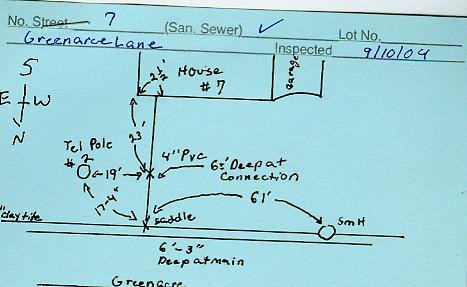 No. Street 7 (San. Sewer) ✓ Lot No.
Greenacre Lane Inspected 9/10/04
S
E W
N
2½'
House
#7
Garage
23'
Tel Pole
#2
19'
4" PVC
6½' Deep at
Connection
17'-4"
61'
"clay tile
saddle
SMH
6'-3"
Deep at main
Greenacre